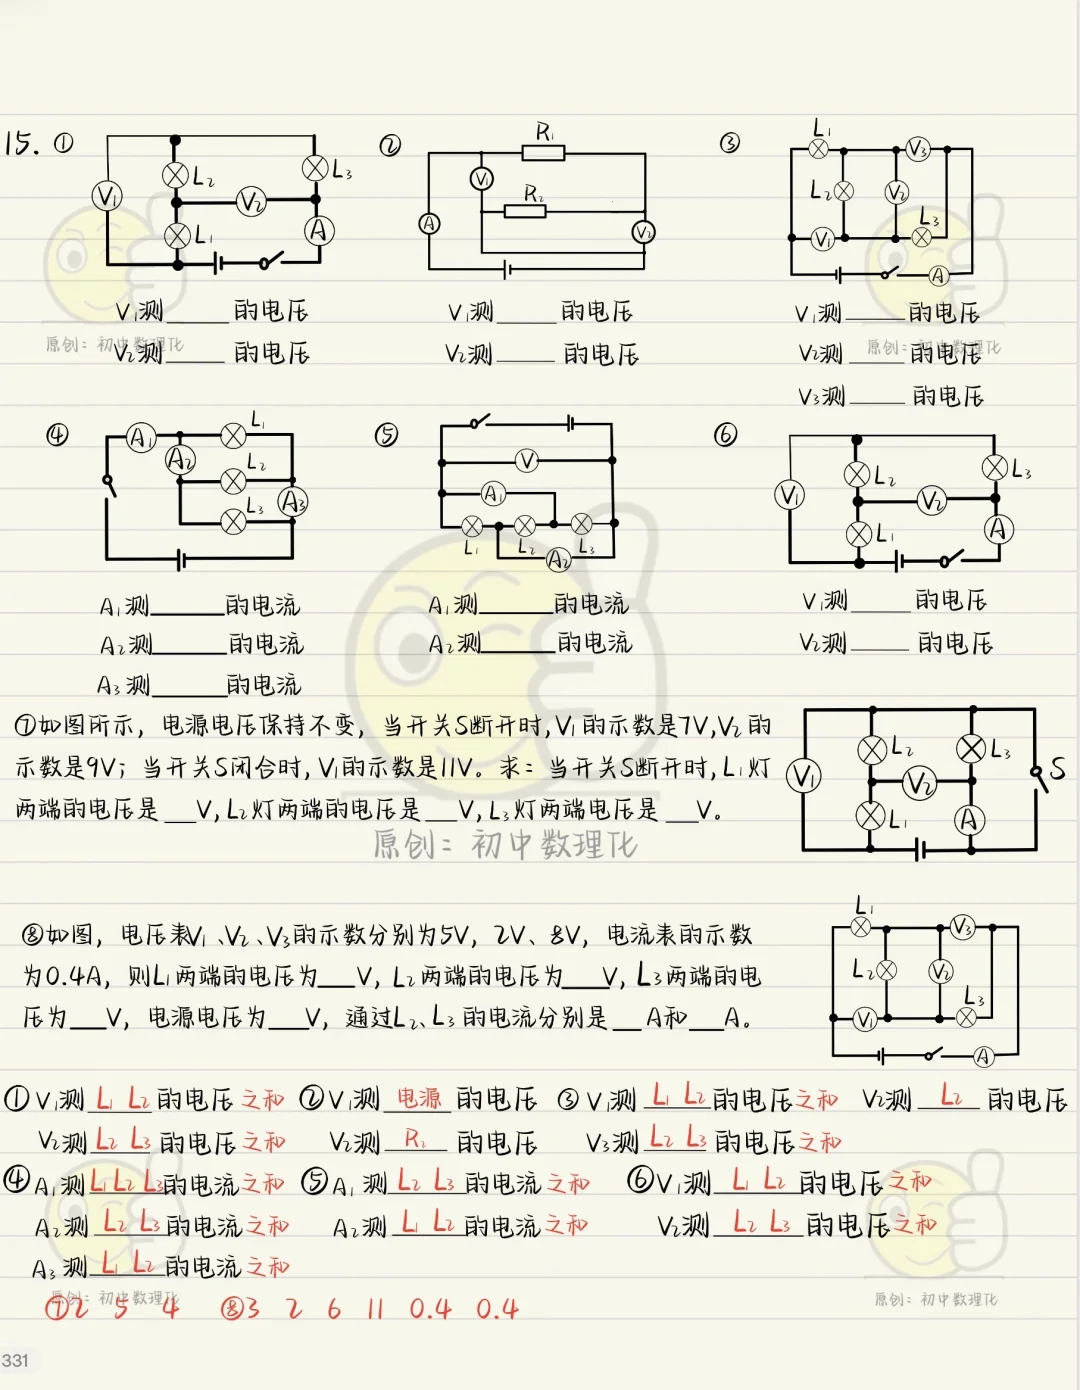 15. ① ② ③
V₁ L₂ L₃ V₂ L₁ A
R₁ V₁ R₂ A V₂
L₁ V₃ L₂ V₂ L₃ V₁ A
V₁测____的电压 V₁测____的电压 V₁测____的电压
V₂测____的电压 V₂测____的电压 V₂测____的电压
V₃测____的电压
原创：初中数理化 原创：初中数理化
④ ⑤ ⑥
A₁ L₁ A₂ L₂ L₃ A₃
V A₁ L₁ L₂ L₃ A₂
V₁ L₂ L₃ V₂ L₁ A
A₁测____的电流 A₁测____的电流 V₁测____的电压
A₂测____的电流 A₂测____的电流 V₂测____的电压
A₃测____的电流
⑦如图所示，电源电压保持不变，当开关S断开时，V₁的示数是7V，V₂的
示数是9V；当开关S闭合时，V₁的示数是11V。求：当开关S断开时，L₁灯
两端的电压是__V，L₂灯两端的电压是__V，L₃灯两端电压是__V。
V₁ L₂ L₃ V₂ L₁ A S
原创：初中数理化
⑧如图，电压表V₁、V₂、V₃的示数分别为5V，2V、8V，电流表的示数
为0.4A，则L₁两端的电压为__V，L₂两端的电压为__V，L₃两端的电
压为__V，电源电压为__V，通过L₂、L₃的电流分别是__A和__A。
L₁ V₃ L₂ V₂ L₃ V₁ A
①V₁测L₁ L₂的电压之和 ②V₁测电源的电压 ③V₁测L₁ L₂的电压之和 V₂测L₂的电压
V₂测L₂ L₃的电压之和 V₂测R₂的电压 V₃测L₂ L₃的电压之和
④A₁测L₁L₂L₃的电流之和 ⑤A₁测L₂ L₃的电流之和 ⑥V₁测L₁ L₂的电压之和
A₂测L₂ L₃的电流之和 A₂测L₁ L₂的电流之和 V₂测L₂ L₃的电压之和
A₃测L₁ L₂的电流之和
⑦2 5 4 ⑧3 2 6 11 0.4 0.4
原创：初中数理化 原创：初中数理化
331